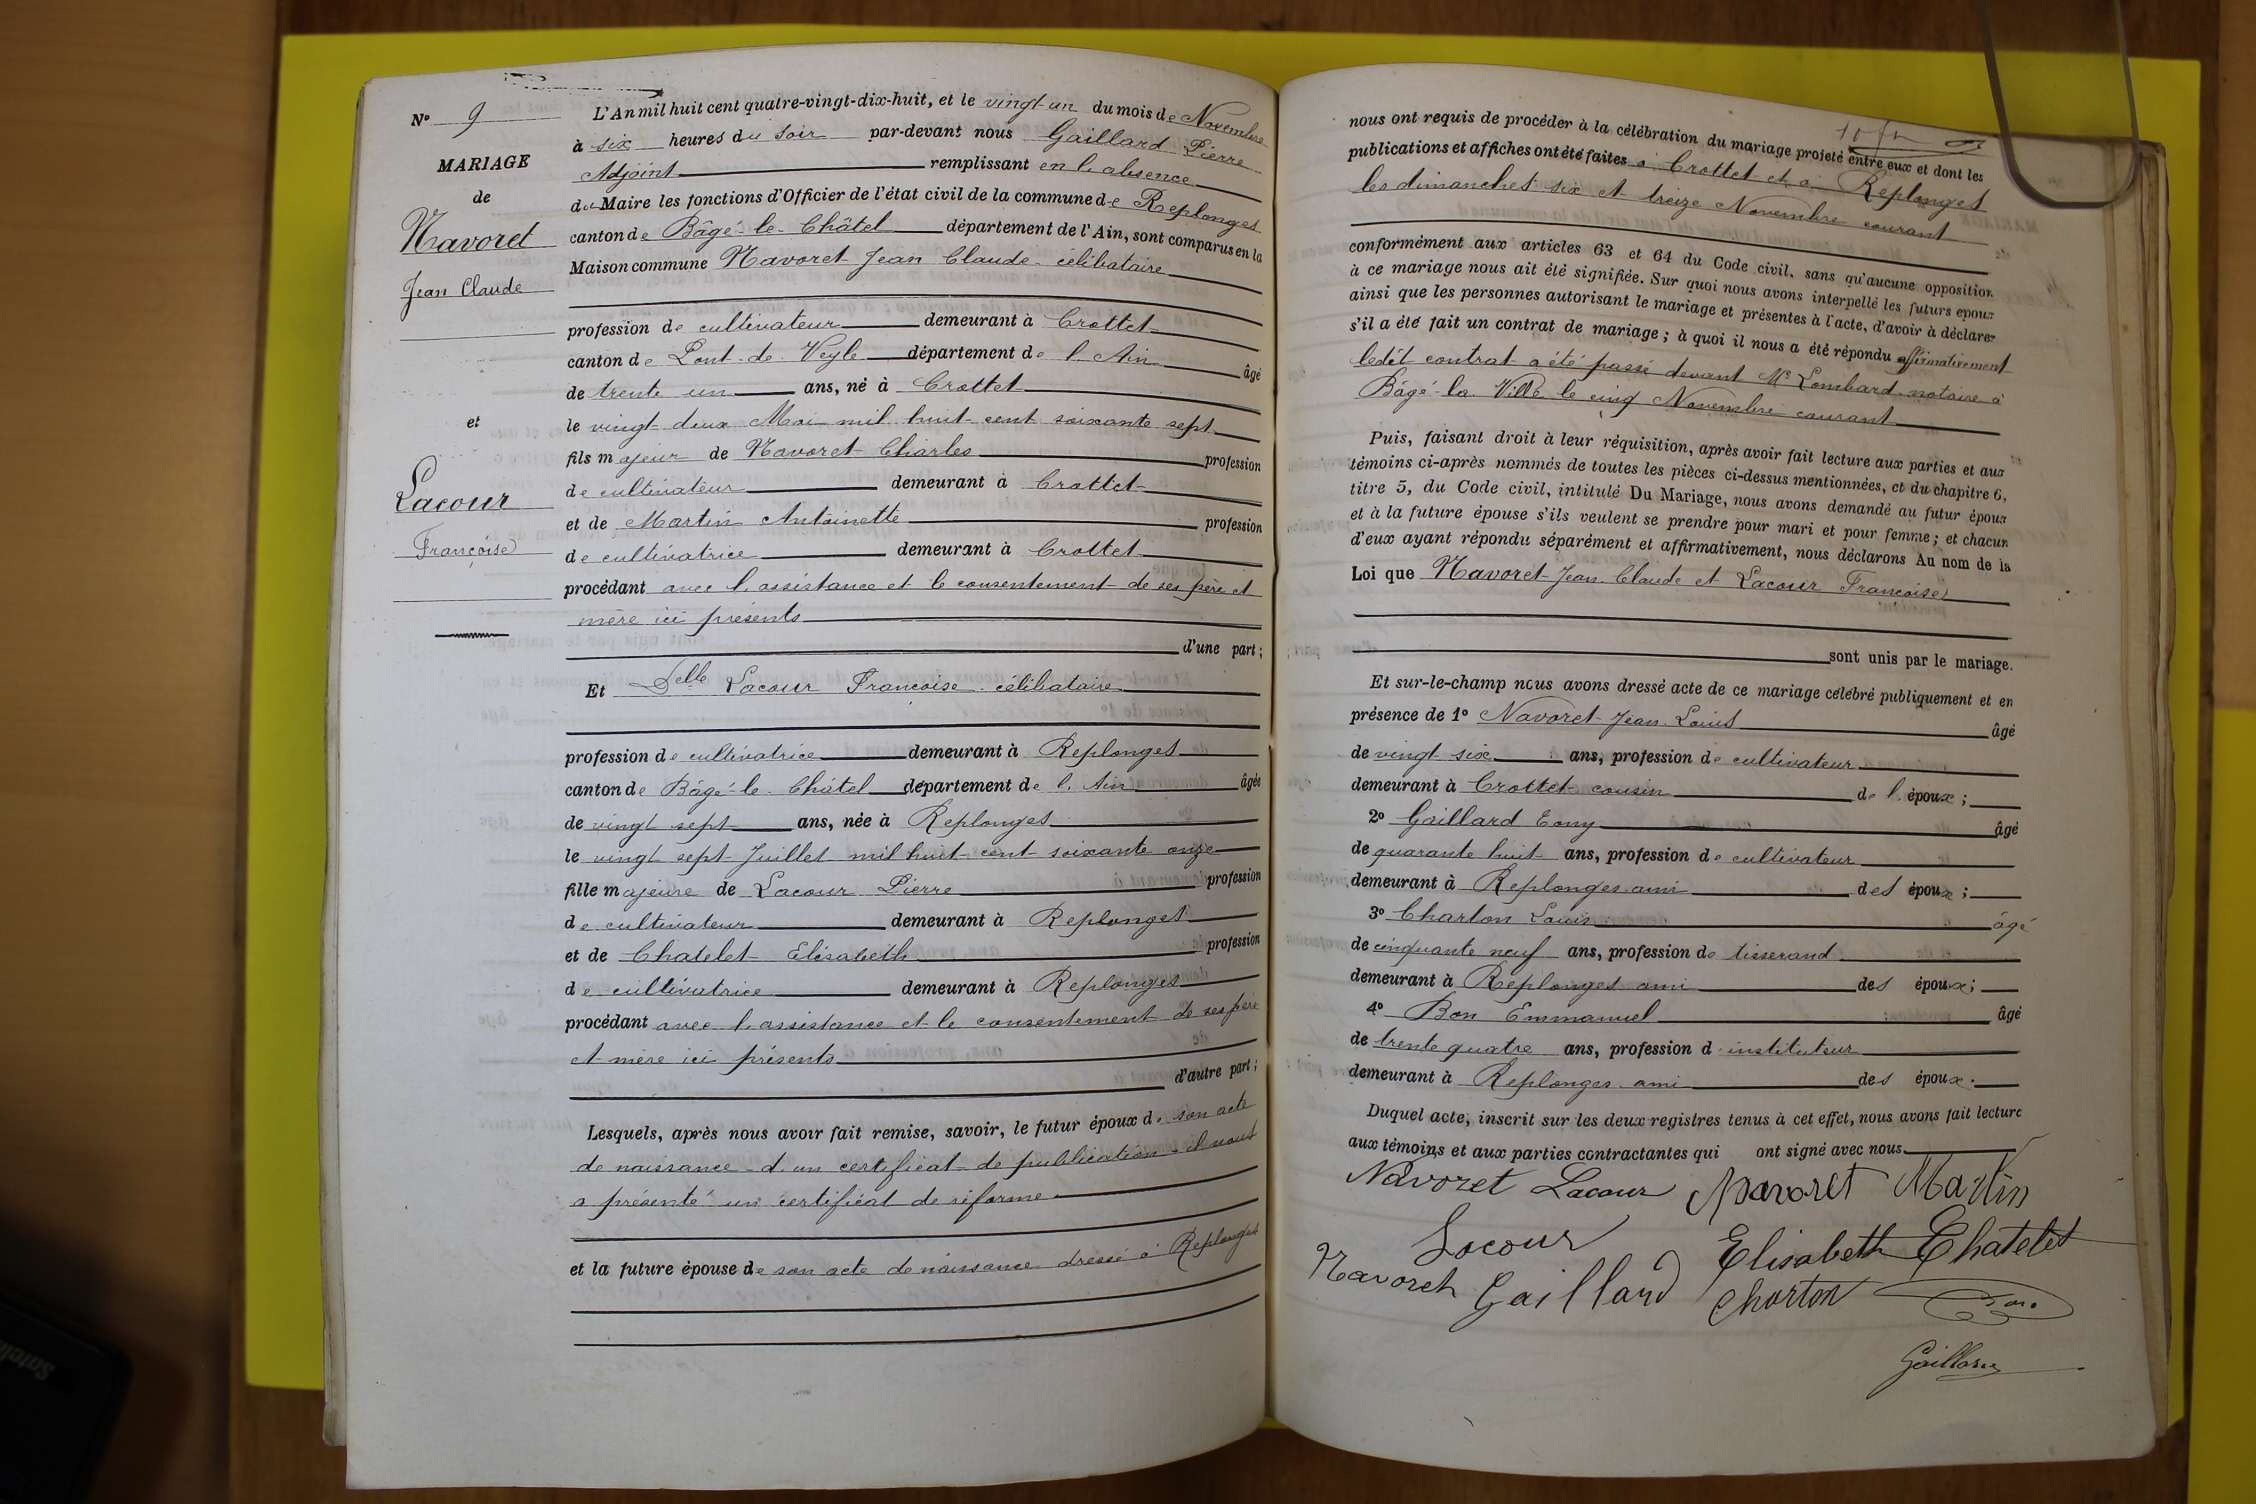 N° 9
MARIAGE
de
Navoret
Jean Claude
et
Lacour
Françoise
L'An mil huit cent quatre-vingt-dix-huit, et le vingt-un du mois de Novembre
à six heures du soir par-devant nous Gaillard Pierre
Adjoint remplissant en l'absence
du Maire les fonctions d'Officier de l'état civil de la commune de Replonges
canton de Bâgé-le-Châtel département de l'Ain, sont comparus en la
Maison commune Navoret Jean Claude célibataire
profession de cultivateur demeurant à Crottet
canton de Pont-de-Veyle département de l'Ain âgé
de trente un ans, né à Crottet
le vingt-deux Mai mil huit cent soixante sept
fils majeur de Navoret Charles profession
de cultivateur demeurant à Crottet
et de Martin Antoinette profession
de cultivatrice demeurant à Crottet
procédant avec l'assistance et le consentement de ses père et
mère ici présents
d'une part;
Et Delle Lacour Françoise célibataire
profession de cultivatrice demeurant à Replonges
canton de Bâgé-le-Châtel département de l'Ain âgée
de vingt sept ans, née à Replonges
le vingt sept Juillet mil huit cent soixante onze
fille majeure de Lacour Pierre profession
de cultivateur demeurant à Replonges
et de Chatelet Elisabeth profession
de cultivatrice demeurant à Replonges
procédant avec l'assistance et le consentement de ses père
et mère ici présents
d'autre part;
Lesquels, après nous avoir fait remise, savoir, le futur époux de son acte
de naissance d'un certificat de publication il nous
a présenté un certificat de réforme
et la future épouse de son acte de naissance dressé à Replonges
nous ont requis de procéder à la célébration du mariage projeté entre eux et dont les
publications et affiches ont été faites à Crottet et à Replonges
les dimanches six et treize Novembre courant
conformément aux articles 63 et 64 du Code civil, sans qu'aucune opposition
à ce mariage nous ait été signifiée. Sur quoi nous avons interpellé les futurs époux
ainsi que les personnes autorisant le mariage et présentes à l'acte, d'avoir à déclarer
s'il a été fait un contrat de mariage; à quoi il nous a été répondu affirmativement
ledit contrat a été passé devant Me Lombard notaire à
Bâgé-la-Ville le cinq Novembre courant
Puis, faisant droit à leur réquisition, après avoir fait lecture aux parties et aux
témoins ci-après nommés de toutes les pièces ci-dessus mentionnées, et du chapitre 6,
titre 5, du Code civil, intitulé Du Mariage, nous avons demandé au futur époux
et à la future épouse s'ils veulent se prendre pour mari et pour femme; et chacun
d'eux ayant répondu séparément et affirmativement, nous déclarons Au nom de la
Loi que Navoret Jean Claude et Lacour Françoise
sont unis par le mariage.
Et sur-le-champ nous avons dressé acte de ce mariage célébré publiquement et en
présence de 1° Navoret Jean Louis âgé
de vingt six ans, profession de cultivateur
demeurant à Crottet cousin de l'époux;
2° Gaillard Tony âgé
de quarante huit ans, profession de cultivateur
demeurant à Replonges ami des époux;
3° Charton Louis âgé
de cinquante neuf ans, profession de tisserand
demeurant à Replonges ami des époux;
4° Bon Emmanuel âgé
de trente quatre ans, profession d'instituteur
demeurant à Replonges ami des époux.
Duquel acte, inscrit sur les deux registres tenus à cet effet, nous avons fait lecture
aux témoins et aux parties contractantes qui ont signé avec nous
Navoret Lacour Navoret Martin
Lacour Elisabeth Chatelet
Navoret Gaillard Charton Bon
Gaillard